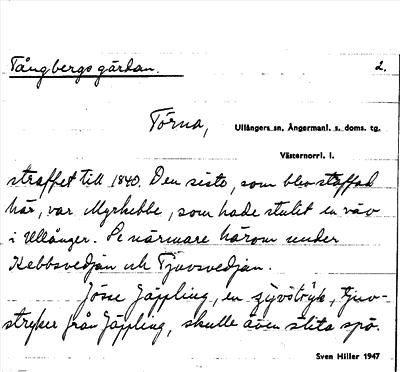 Tångbergs gårdan. 2.
Törna, Ullångers sn, Ångermanl. s. doms. tg.
Västernorrl. l.
straffet till 1840. Den siste, som blev straffad
här, var Myrkebbe, som hade stulit en väv
i Ullånger. Se närmare härom under
Kebbsvedjan och Tjuvsvedjan.
Jösse Jäppling, en tjuv-
stryker från Jäppling, skulle även slita spö.
Sven Hiller 1947